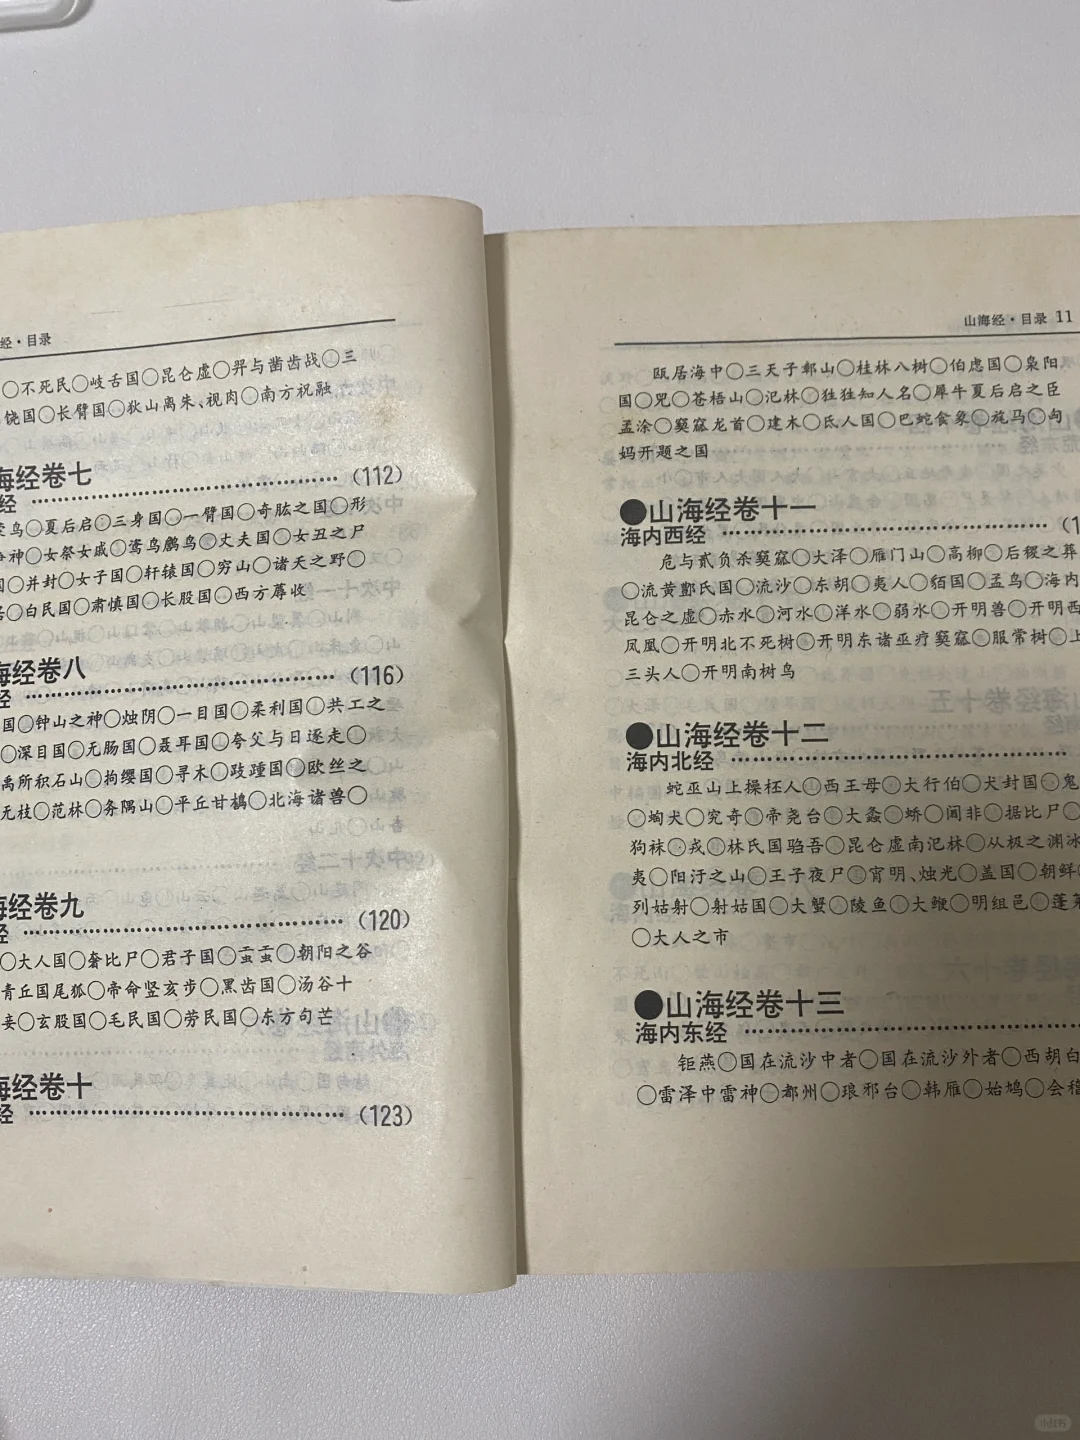 经·目录
○不死民○岐舌国○昆仑虚○羿与凿齿战○三
饶国○长臂国○狄山离朱、视肉○南方祝融
海经卷七
经 (112)
鸟○夏后启○三身国○一臂国○奇肱之国○形
神○女祭女戚○鸾鸟鶬鸟○丈夫国○女丑之尸
○并封○女子国○轩辕国○穷山○诸夭之野○
○白民国○肃慎国○长股国○西方蓐收
海经卷八
经 (116)
国○钟山之神○烛阴○一目国○柔利国○共工之
○深目国○无肠国○聂耳国○夸父与日逐走○
禹所积石山○拘缨国○寻木○跂踵国○欧丝之
无枝○范林○务隅山○平丘甘樝○北海诸兽○
海经卷九
经 (120)
○大人国○奢比尸○君子国○䖝䖝○朝阳之谷
青丘国尾狐○帝命竖亥步○黑齿国○汤谷十
妾○玄股国○毛民国○劳民国○东方句芒
海经卷十
经 (123)
山海经·目录 11
瓯居海中○三天子鄣山○桂林八树○伯虑国○枭阳
国○兕○苍梧山○氾林○狌狌知人名○犀牛夏后启之臣
孟涂○窫窳龙首○建木○氐人国○巴蛇食象○旄马○匈
奴开题之国
●山海经卷十一
海内西经 (1
危与贰负杀窫窳○大泽○雁门山○高柳○后稷之葬
○流黄酆氏国○流沙○东胡○夷人○貊国○孟鸟○海内
昆仑之虚○赤水○河水○洋水○弱水○开明兽○开明西
凤凰○开明北不死树○开明东诸巫疗窫窳○服常树○上
三头人○开明南树鸟
●山海经卷十二
海内北经
蛇巫山上操柸人○西王母○大行伯○犬封国○鬼
○蜪犬○穷奇○帝尧台○大螽○蟜○阘非○据比尸○
狗袜○戎○林氏国驺吾○昆仑虚南氾林○从极之渊冰
夷○阳汙之山○王子夜尸○宵明、烛光○盖国○朝鲜
列姑射○射姑国○大蟹○陵鱼○大鯾○明组邑○蓬莱
○大人之市
●山海经卷十三
海内东经
钜燕○国在流沙中者○国在流沙外者○西胡白
○雷泽中雷神○都州○琅邪台○韩雁○始鸠○会稽
小红书